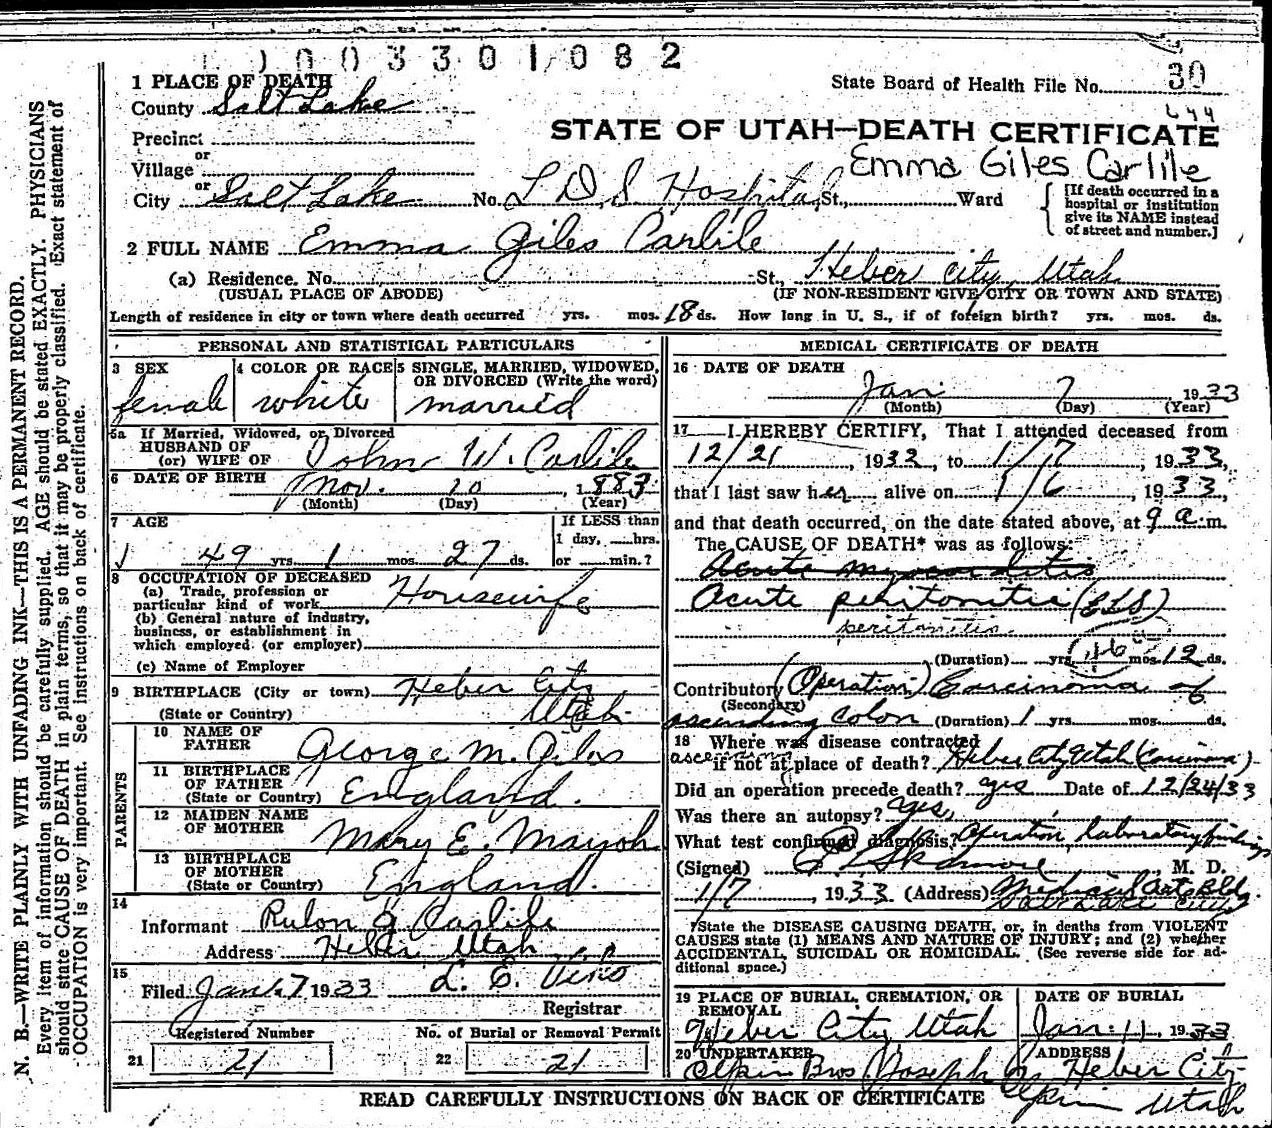 1003301082
State Board of Health File No. 30
644
STATE OF UTAH—DEATH CERTIFICATE
Emma Giles Carlile
1 PLACE OF DEATH
County Salt Lake
Precinct
or
Village
or
City Salt Lake No. L D S Hospital St., Ward
[If death occurred in a hospital or institution give its NAME instead of street and number.]
2 FULL NAME Emma Giles Carlile
(a) Residence. No. St., Heber City, Utah
(USUAL PLACE OF ABODE) (IF NON-RESIDENT GIVE CITY OR TOWN AND STATE)
Length of residence in city or town where death occurred yrs. mos. 18 ds. How long in U. S., if of foreign birth? yrs. mos. ds.
PERSONAL AND STATISTICAL PARTICULARS
3 SEX
female
4 COLOR OR RACE
white
5 SINGLE, MARRIED, WIDOWED, OR DIVORCED (Write the word)
married
5a If Married, Widowed, or Divorced
HUSBAND OF
(or) WIFE OF John W. Carlile
6 DATE OF BIRTH Nov. 10, 1883
(Month) (Day) (Year)
7 AGE
49 yrs. 1 mos. 27 ds.
If LESS than
1 day, hrs.
or min.?
8 OCCUPATION OF DECEASED
(a) Trade, profession or
particular kind of work Housewife
(b) General nature of industry,
business, or establishment in
which employed (or employer)
(c) Name of Employer
9 BIRTHPLACE (City or town) Heber City
(State or Country) Utah
PARENTS
10 NAME OF
FATHER George M. Giles
11 BIRTHPLACE
OF FATHER
(State or Country) England.
12 MAIDEN NAME
OF MOTHER Mary E. Mayoh
13 BIRTHPLACE
OF MOTHER
(State or Country) England.
14
Informant Rulon G Carlile
Address Heber Utah
15
Filed Jan. 7 1933 L. E. Viko
Registrar
Registered Number
21 21
No. of Burial or Removal Permit
22 21
MEDICAL CERTIFICATE OF DEATH
16 DATE OF DEATH
Jan 7 1933
(Month) (Day) (Year)
17 I HEREBY CERTIFY, That I attended deceased from
12/21, 1932, to 1/7, 1933,
that I last saw her alive on 1/6, 1933,
and that death occurred, on the date stated above, at 9 a.m.
The CAUSE OF DEATH* was as follows:
Acute myocarditis
Acute peritonitis (ELS)
peritonitis
(Duration) yrs. mos. 12 ds.
Contributory (Operation) Carcinoma of
(Secondary)
ascending colon (Duration) 1 yrs. mos. ds.
18 Where was disease contracted
ascending
if not at place of death? Heber City Utah (Carcinoma)
Did an operation precede death? yes Date of 12/24/33
Was there an autopsy? yes,
What test confirmed diagnosis? Operation, laboratory findings
(Signed) E L Skidmore, M. D.
1/7, 1933 (Address) Medical Arts Bldg
Salt Lake City
*State the DISEASE CAUSING DEATH, or, in deaths from VIOLENT
CAUSES state (1) MEANS AND NATURE OF INJURY; and (2) whether
ACCIDENTAL, SUICIDAL OR HOMICIDAL. (See reverse side for ad-
ditional space.)
19 PLACE OF BURIAL, CREMATION, OR
REMOVAL
Heber City, Utah
DATE OF BURIAL
Jan. 11, 1933
20 UNDERTAKER
Olpin Bros Joseph
Olpin
ADDRESS
Heber City
Utah
READ CAREFULLY INSTRUCTIONS ON BACK OF CERTIFICATE
N. B.—WRITE PLAINLY WITH UNFADING INK—THIS IS A PERMANENT RECORD.
Every item of information should be carefully supplied. AGE should be stated EXACTLY. PHYSICIANS
should state CAUSE OF DEATH in plain terms, so that it may be properly classified. Exact statement of
OCCUPATION is very important. See instructions on back of certificate.